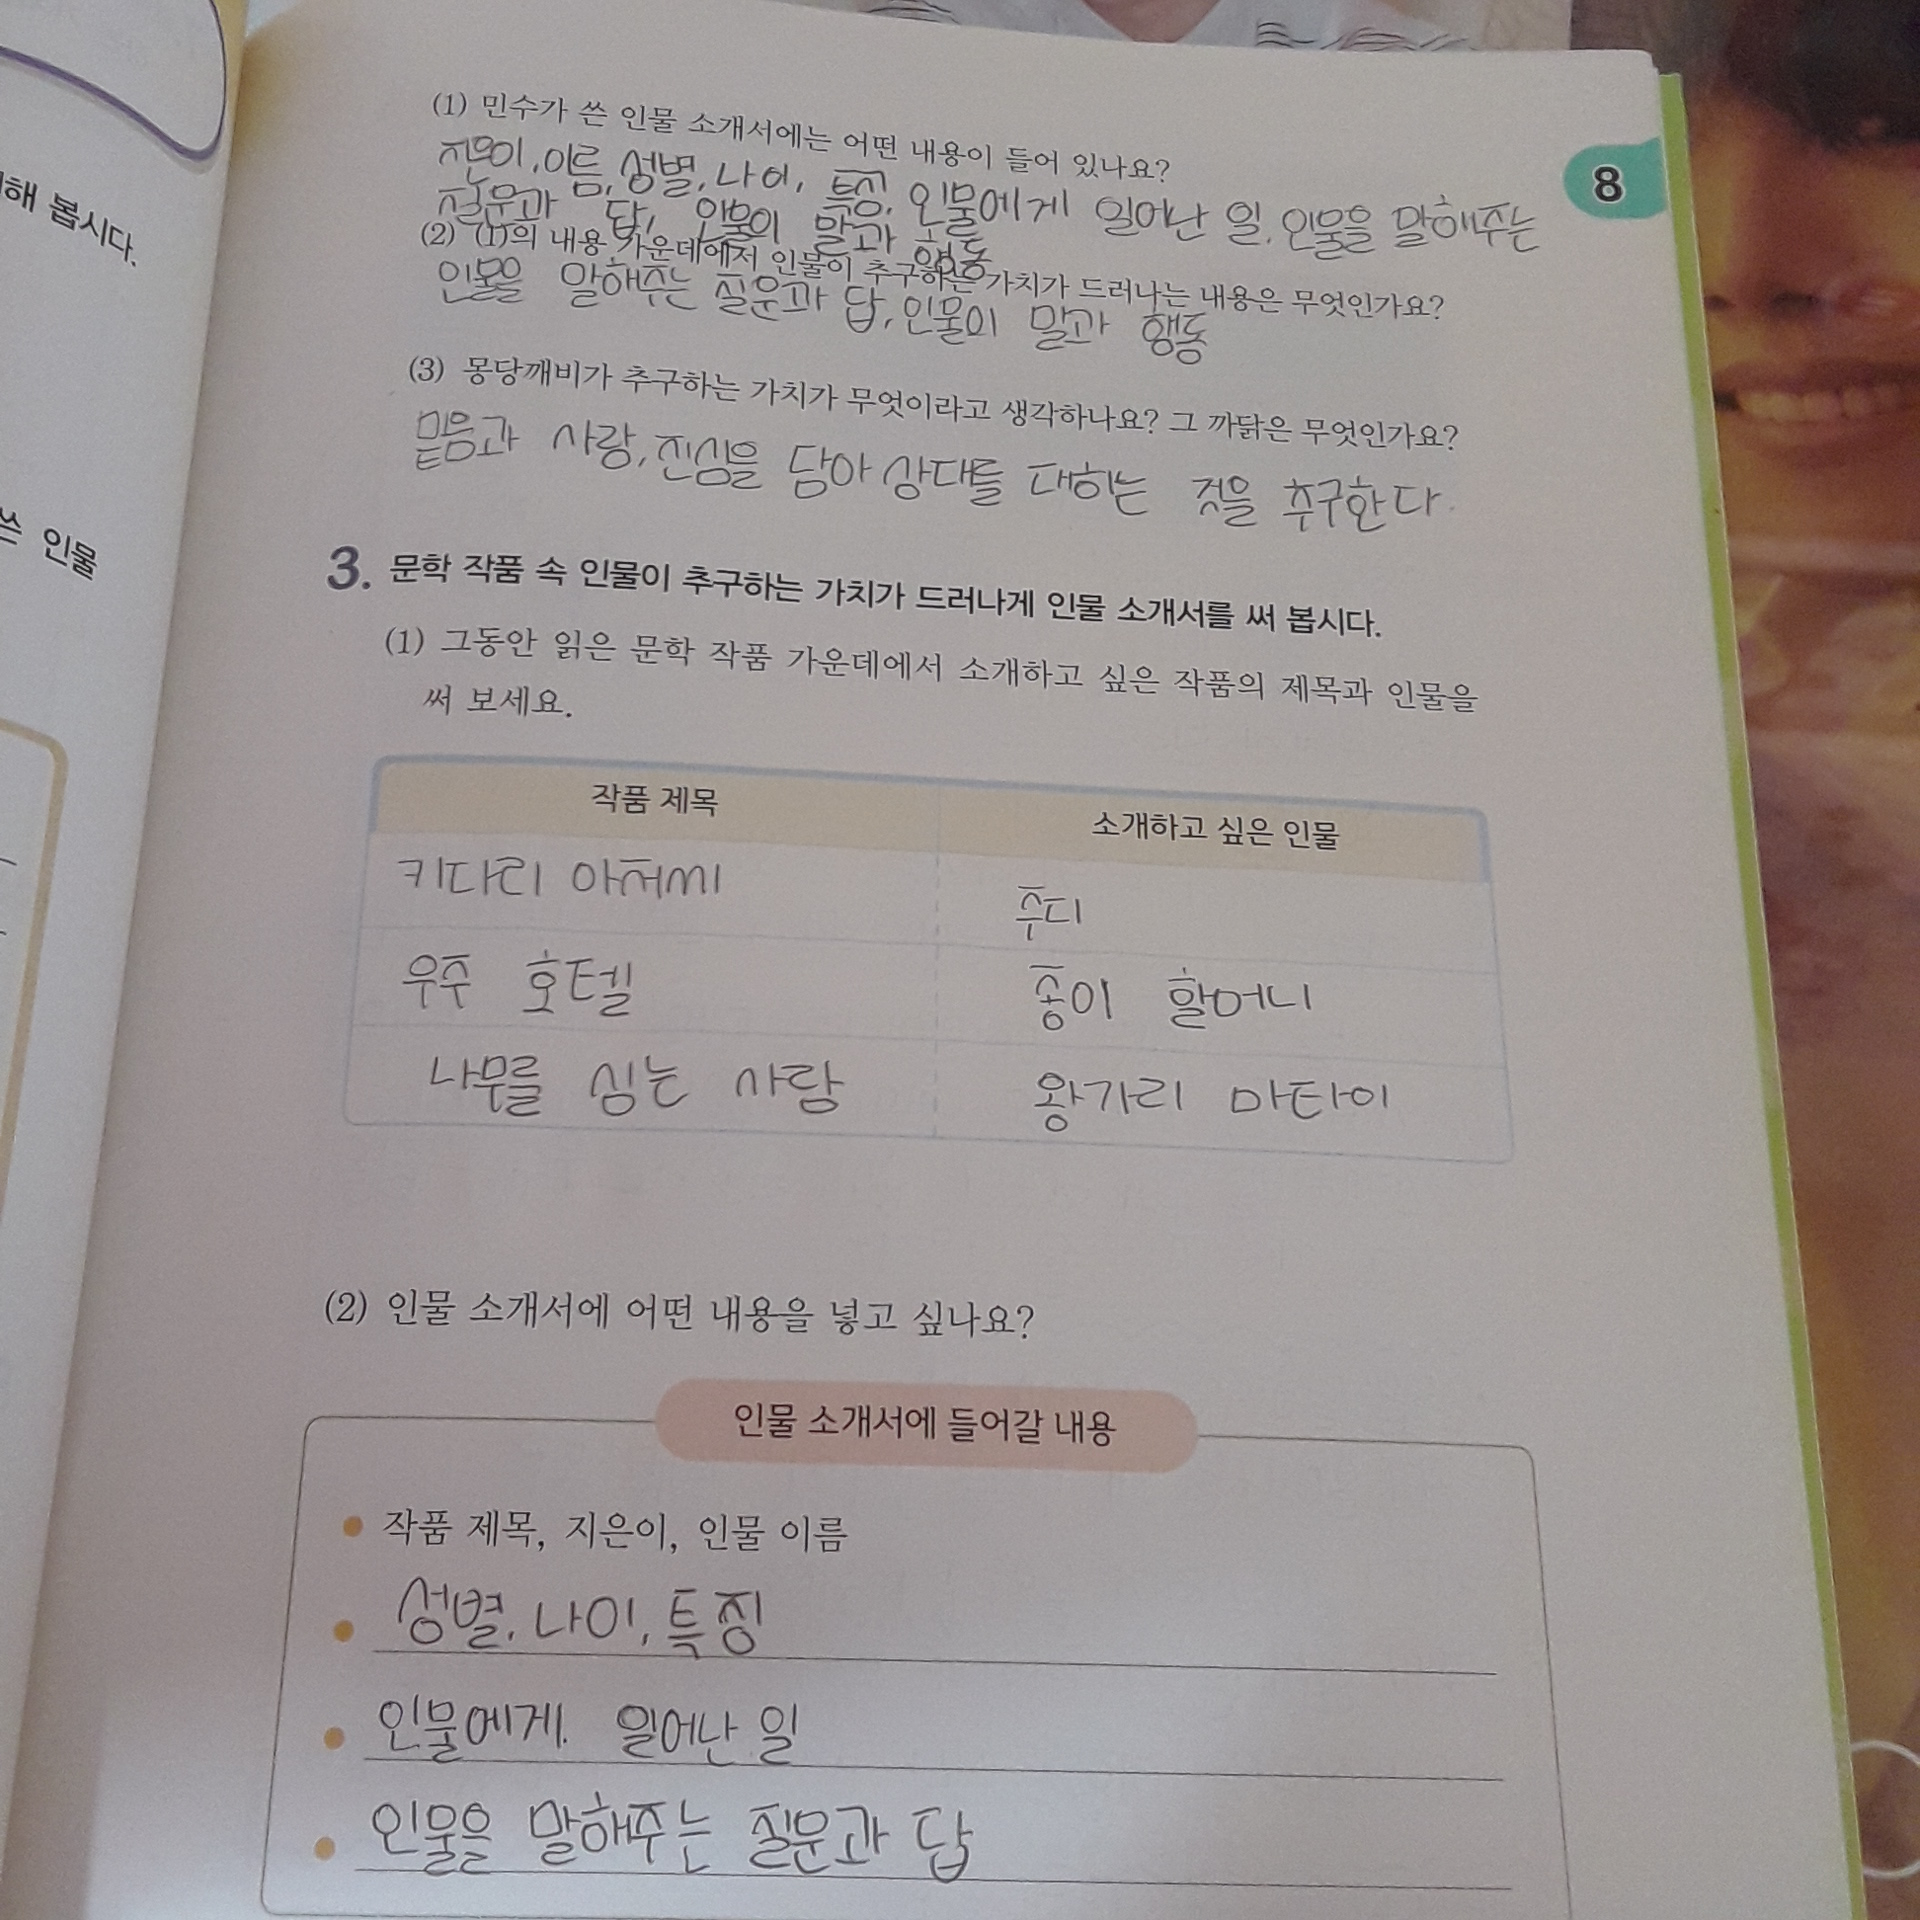 해 봅시다.
쓴 인물
8
(1) 민수가 쓴 인물 소개서에는 어떤 내용이 들어 있나요?
지은이, 이름, 성별, 나이, 특징, 인물에게 일어난 일, 인물을 말해주는
질문과 답, 인물의 말과 행동
(2) (1)의 내용 가운데에서 인물이 추구하는 가치가 드러나는 내용은 무엇인가요?
인물을 말해주는 질문과 답, 인물의 말과 행동
(3) 몽당깨비가 추구하는 가치가 무엇이라고 생각하나요? 그 까닭은 무엇인가요?
믿음과 사랑, 진심을 담아 상대를 대하는 것을 추구한다.
3. 문학 작품 속 인물이 추구하는 가치가 드러나게 인물 소개서를 써 봅시다.
(1) 그동안 읽은 문학 작품 가운데에서 소개하고 싶은 작품의 제목과 인물을
써 보세요.
작품 제목 소개하고 싶은 인물
키다리 아저씨 주디
우주 호텔 종이 할머니
나무를 심는 사람 왕가리 마타이
(2) 인물 소개서에 어떤 내용을 넣고 싶나요?
인물 소개서에 들어갈 내용
• 작품 제목, 지은이, 인물 이름
• 성별, 나이, 특징
• 인물에게 일어난 일
• 인물을 말해주는 질문과 답